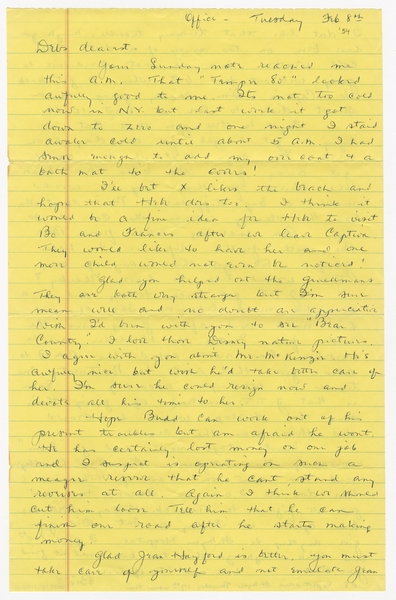 Office - Tuesday Feb 8th
'54
Debs dearest -
Your Sunday note reached me
this A.M. That "Temper 80°" looked
awfully good to me. Its not too cold
now in N.Y. but last week it got
down to zero and one night I staid
awake cold until about 5 A.M. I had
sense enough to add my over coat & a
bath mat to the covers!
I'll bet X likes the beach and
hope that Hek does too. I think it
would be a fine idea for Hek to visit
Bo and Frances after we leave Captiva
They would like to have her and one
more child would not even be noticed!
Glad you helped out the
They are both very strange but I'm sure
mean well and no doubt are appreciative
I wish I'd been with you to see "Bear
Country". I love those Disney nature pictures.
I agree with you about Mr. McKenzie. He's
awfully nice but wish he'd take better care of
her. I'm sure he could resign now and
devote all his time to her.
Hope Budd can work out of his
present troubles but am afraid he wont.
He has certainly lost money on our job
and I suspect is operating on such a
meager reserve that he cant stand any
reverses at all. Again I think we should
cut him loose. Tell him that he can
finish our road after he starts making
money
Glad Jean Hayford is better. You must
take care of yourself and not emulate Jean